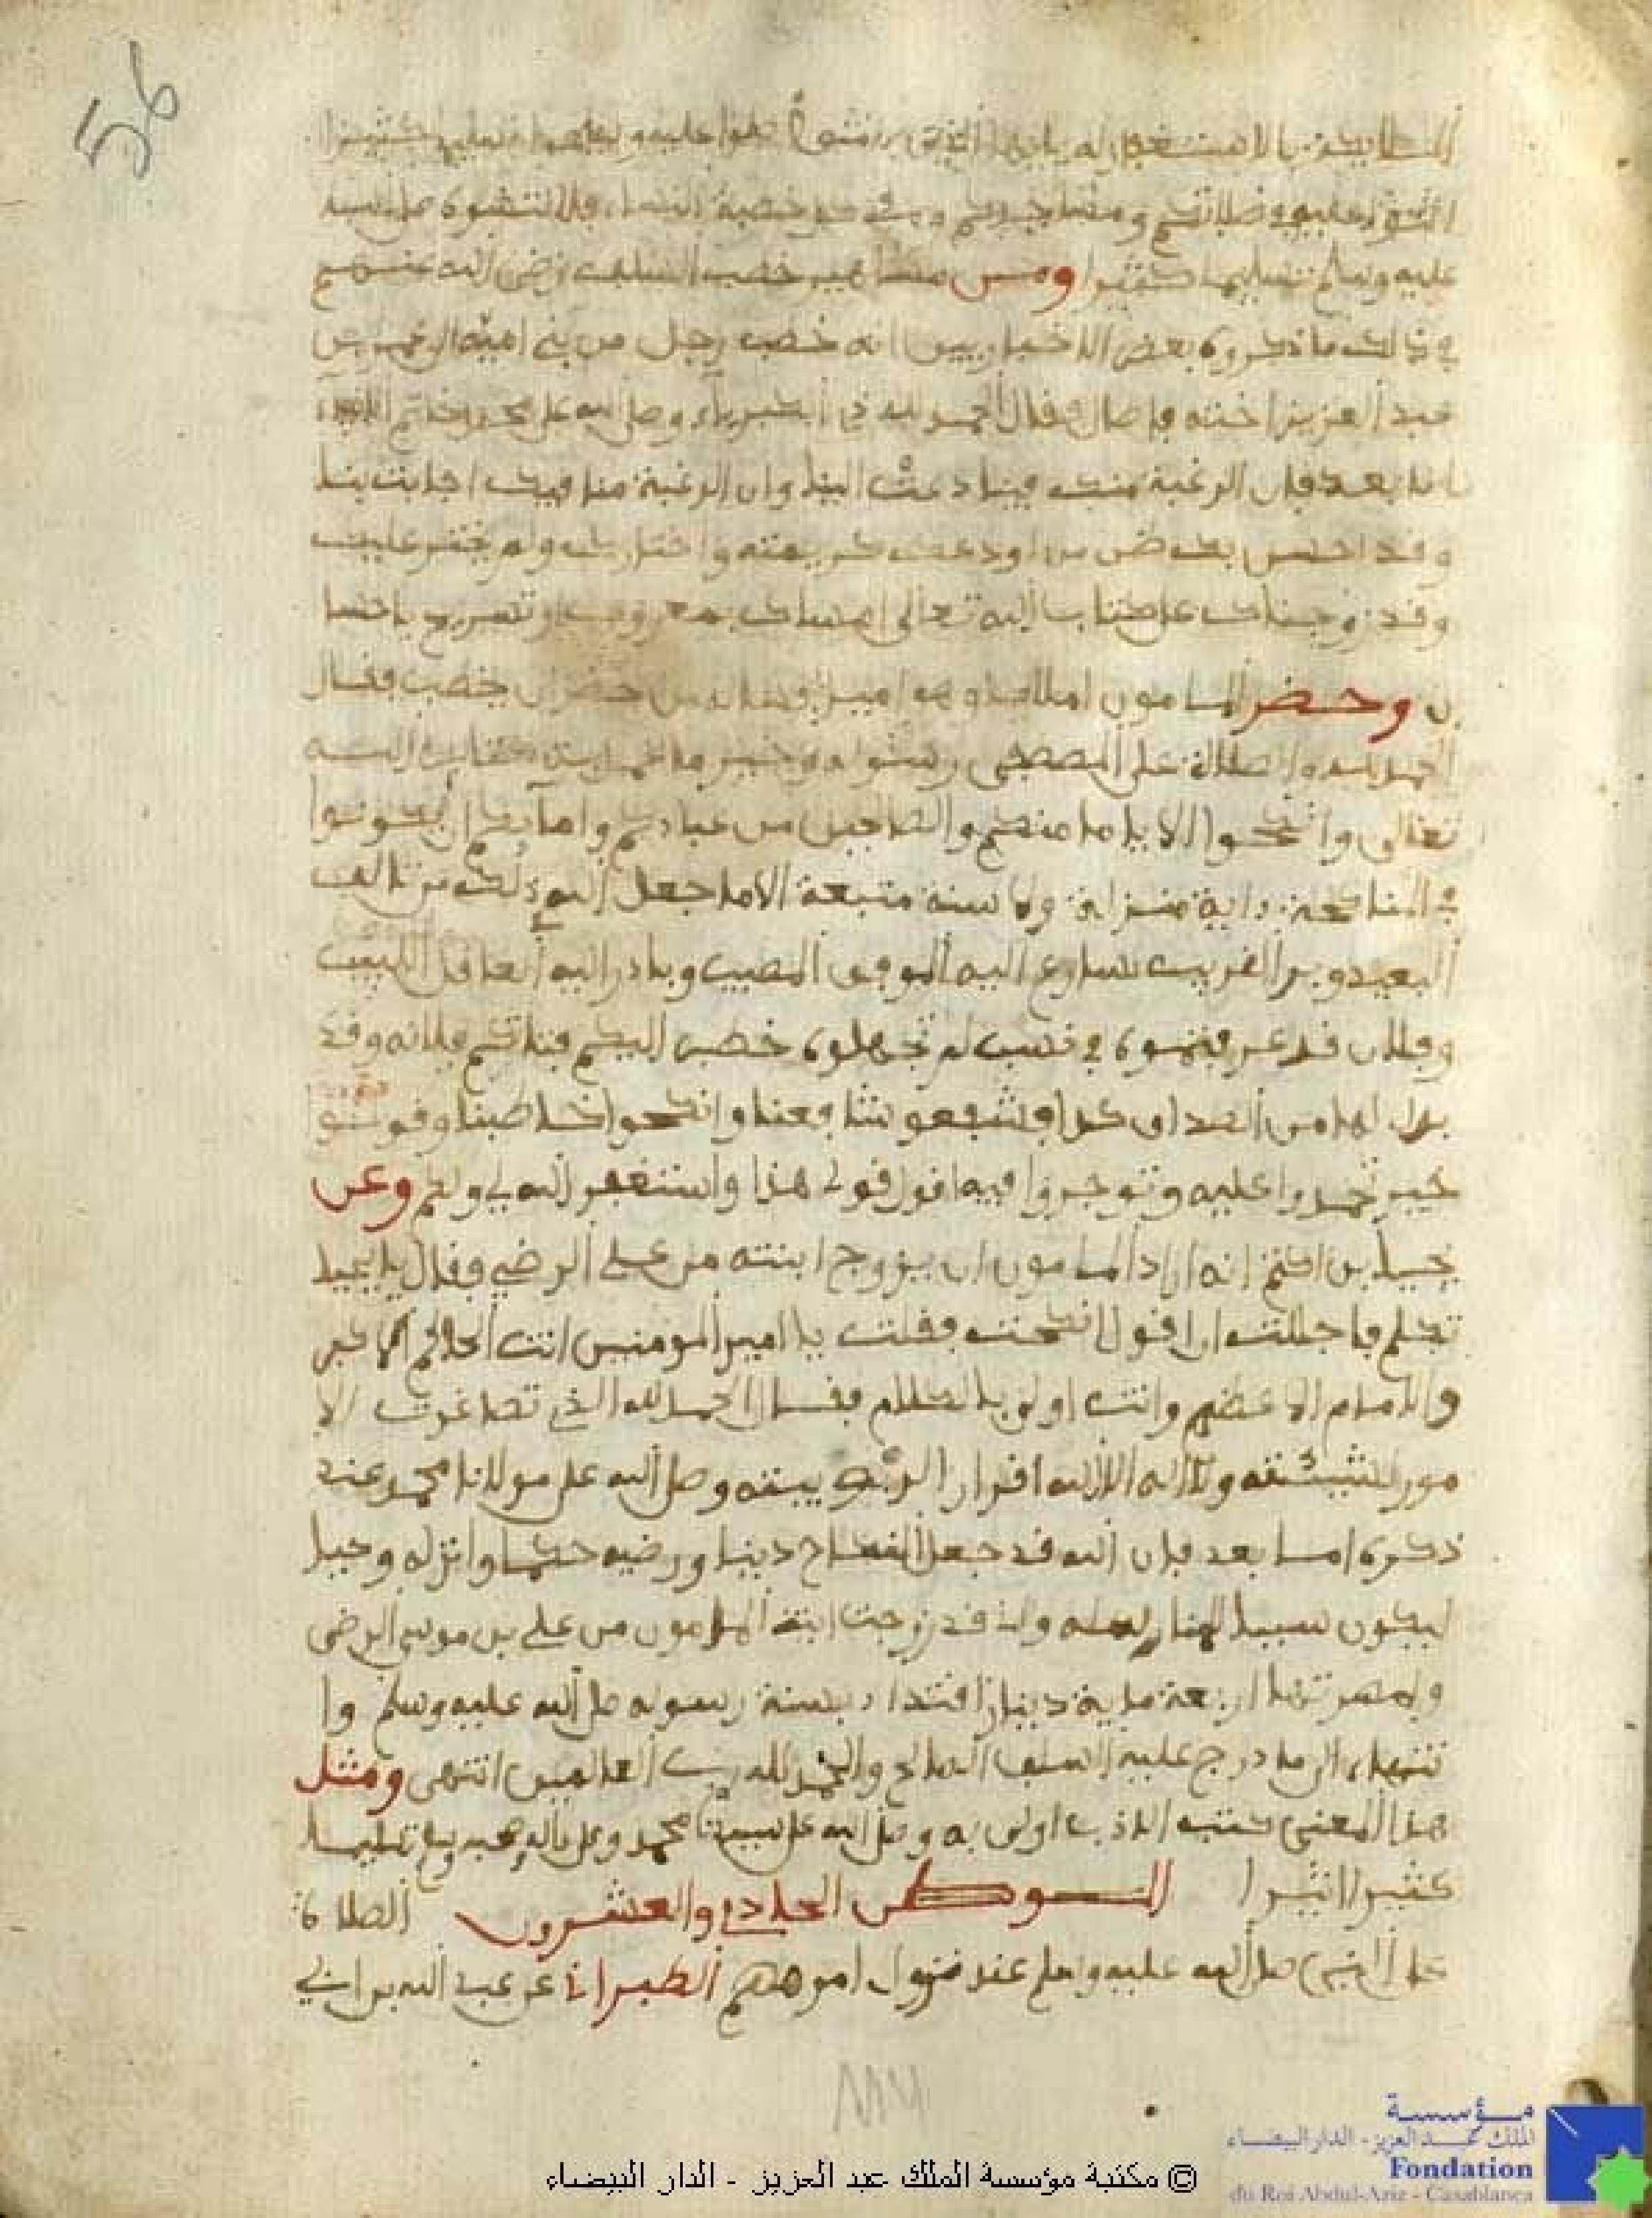 56
عليه وسلم تسليما كثيرا ومن مشاهير خطب السلف رضي الله عنهم
في ذلك ما ذكره بعض الاخباريين انه خطب رجل من بني امية الى عمر بن
عبد العزيز اخته فاطال فقال الحمد لله ذي الكبرياء وصلى الله على محمد خاتم الانبياء
اما بعد فان الرغبة منك فينا دعت الينا وان الرغبة منا فيك اجابت بنا
وقد احسن بك ظن من اودعك كريمته واختارك ولم يختر عليك
وقد زوجناك على كتاب الله تعالى امساك بمعروف او تسريح باحسا
ن وحضر المامون املاكا وهو امير فسأله من حضر ان يخطب فقال
الحمد لله والصلاة على المصطفى رسول الله وخير ما عمل به كتاب الله
تعالى وانكحوا الاياما منكم والصالحين من عبادكم وامائكم ان يكونوا
في المناكحة اية منزلة ولا سنة متبعة الا ما جعل الله في ذلك من تالف
البعيد وبر القريب لسارع اليه الموفق المصيب وبادر اليه العاقل اللبيب
وفلان قد عرفتموه في نسب لم تجهلوه خطب اليكم فتاتكم فلانة وقد
بذل لها من الصداق كذا فشفعوا شافعنا وانكحوا خاطبنا وقولوا
خيرا تحمدوا عليه وتوجروا فيه اقول قولي هذا واستغفر الله لي ولكم وعن
يحيى بن اكثم انه اراد المامون ان يزوج ابنته من علي الرضي فقال يا يحيى
تكلم فاجللت ان اقول انكحت فقلت يا امير المومنين انت الحاكم الاكبر
والامام الاعظم وانت اولى بالكلام فقال الحمد لله الذي تصاغرت الا
مور لمشيئته ولا اله الا الله اقرارا بربوبيته وصلى الله على مولانا محمد عند
ذكره اما بعد فان الله قد جعل النكاح دينا ورضيه حكما وانزله وحيا
ليكون سببا للمناسلة واني قد زوجت ابنة المامون من علي بن موسى الرضى
وامهرتها اربعة ماية دينار اقتداء بسنة رسوله صلى الله عليه وسلم وا
نتهاء الى ما درج عليه السلف الصالح والحمد لله رب العالمين انتهى ومثل
هذا المعنى كتب الادب اولى به وصلى الله على سيدنا محمد وعلى آله وصحبه وسلم تسليما
كثيرا اثيرا الموطن الحادي والعشرون الصلاة
على النبي صلى الله عليه وسلم عند نزول امر مهم الطبراني عن عبد الله بن ابي
© مكتبة مؤسسة الملك عبد العزيز - الدار البيضاء
مؤسسة
الملك عبد العزيز - الدار البيضاء
Fondation
du Roi Abdul-Aziz - Casablanca